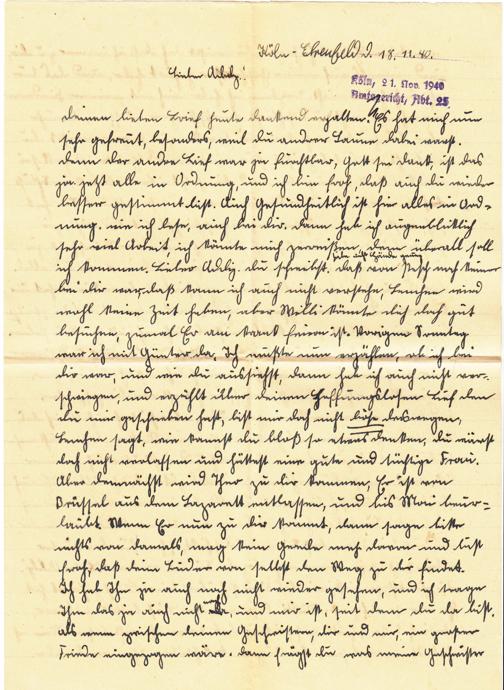 Köln-Ehrenfeld d. 18.11.40.
Lieber Addy!
Köln, 21. Nov. 1940
Amtsgericht, Abt. 25
Deinen lieben Brief heute dankend erhalten. Es hat mich nun
sehr gefreut, besonders, weil du anderer Laune dabei warst.
Denn der andre Brief war zu furchtbar, Gott sei Dank, ist das
ja jetzt alle in Ordnung, und ich bin froh, daß auch du wieder
besser gestimmt bist. Auch Gesundheitlich ist hier alles in Ord-
nung. wie ich lese, auch bei dir. dann hab ich augenblicklich
sehr viel Arbeit, ich könnte mich zerreißen, denn überall soll
ich kommen. Lieber Addy. du schreibst, daß von noch keiner
bei dir war. daß kann ich auch nicht verstehn, Lenchen wird
wohl keine Zeit haben, aber Willi könnte dich doch gut
besuchen, zumal Er am krank feiern ist. Vorigen Sonntag
war ich mit Günter da, Ich mußte nun erzählen, ob ich bei
dir war, und wie du aussiehst, dann hab ich auch nicht ver-
schwiegen, und erzählt über deinen Hoffnungslosen Brief den
du mir geschrieben hast, bist mir doch nicht böse deswegen,
Lenchen sagt, wie kannst du bloß so etwas denken, du wärst
doch nicht verlassen und hättest eine gute und tüchtige Frau.
Aber demnächst wird Theo zu dir kommen, Er ist von
Brüssel aus dem Lazarett entlassen, und bis Mai beur-
laubt. Wenn Er nun zu dir kommt, dann sage bitte
nichts von damals, mag kein Gerede mehr davon und bist
froh, daß dein Bruder von selbst den Weg zu dir findet.
Ich hab Ihn ja auch noch nicht wieder gesehen, und ich trage
Ihm das ja auch nicht, und mir ist, seit dem du da bist,
als wenn zwischen deinen Geschwistern, dir und mir, ein großer
Friede eingezogen wäre. dann frägst du was meine Geschwister